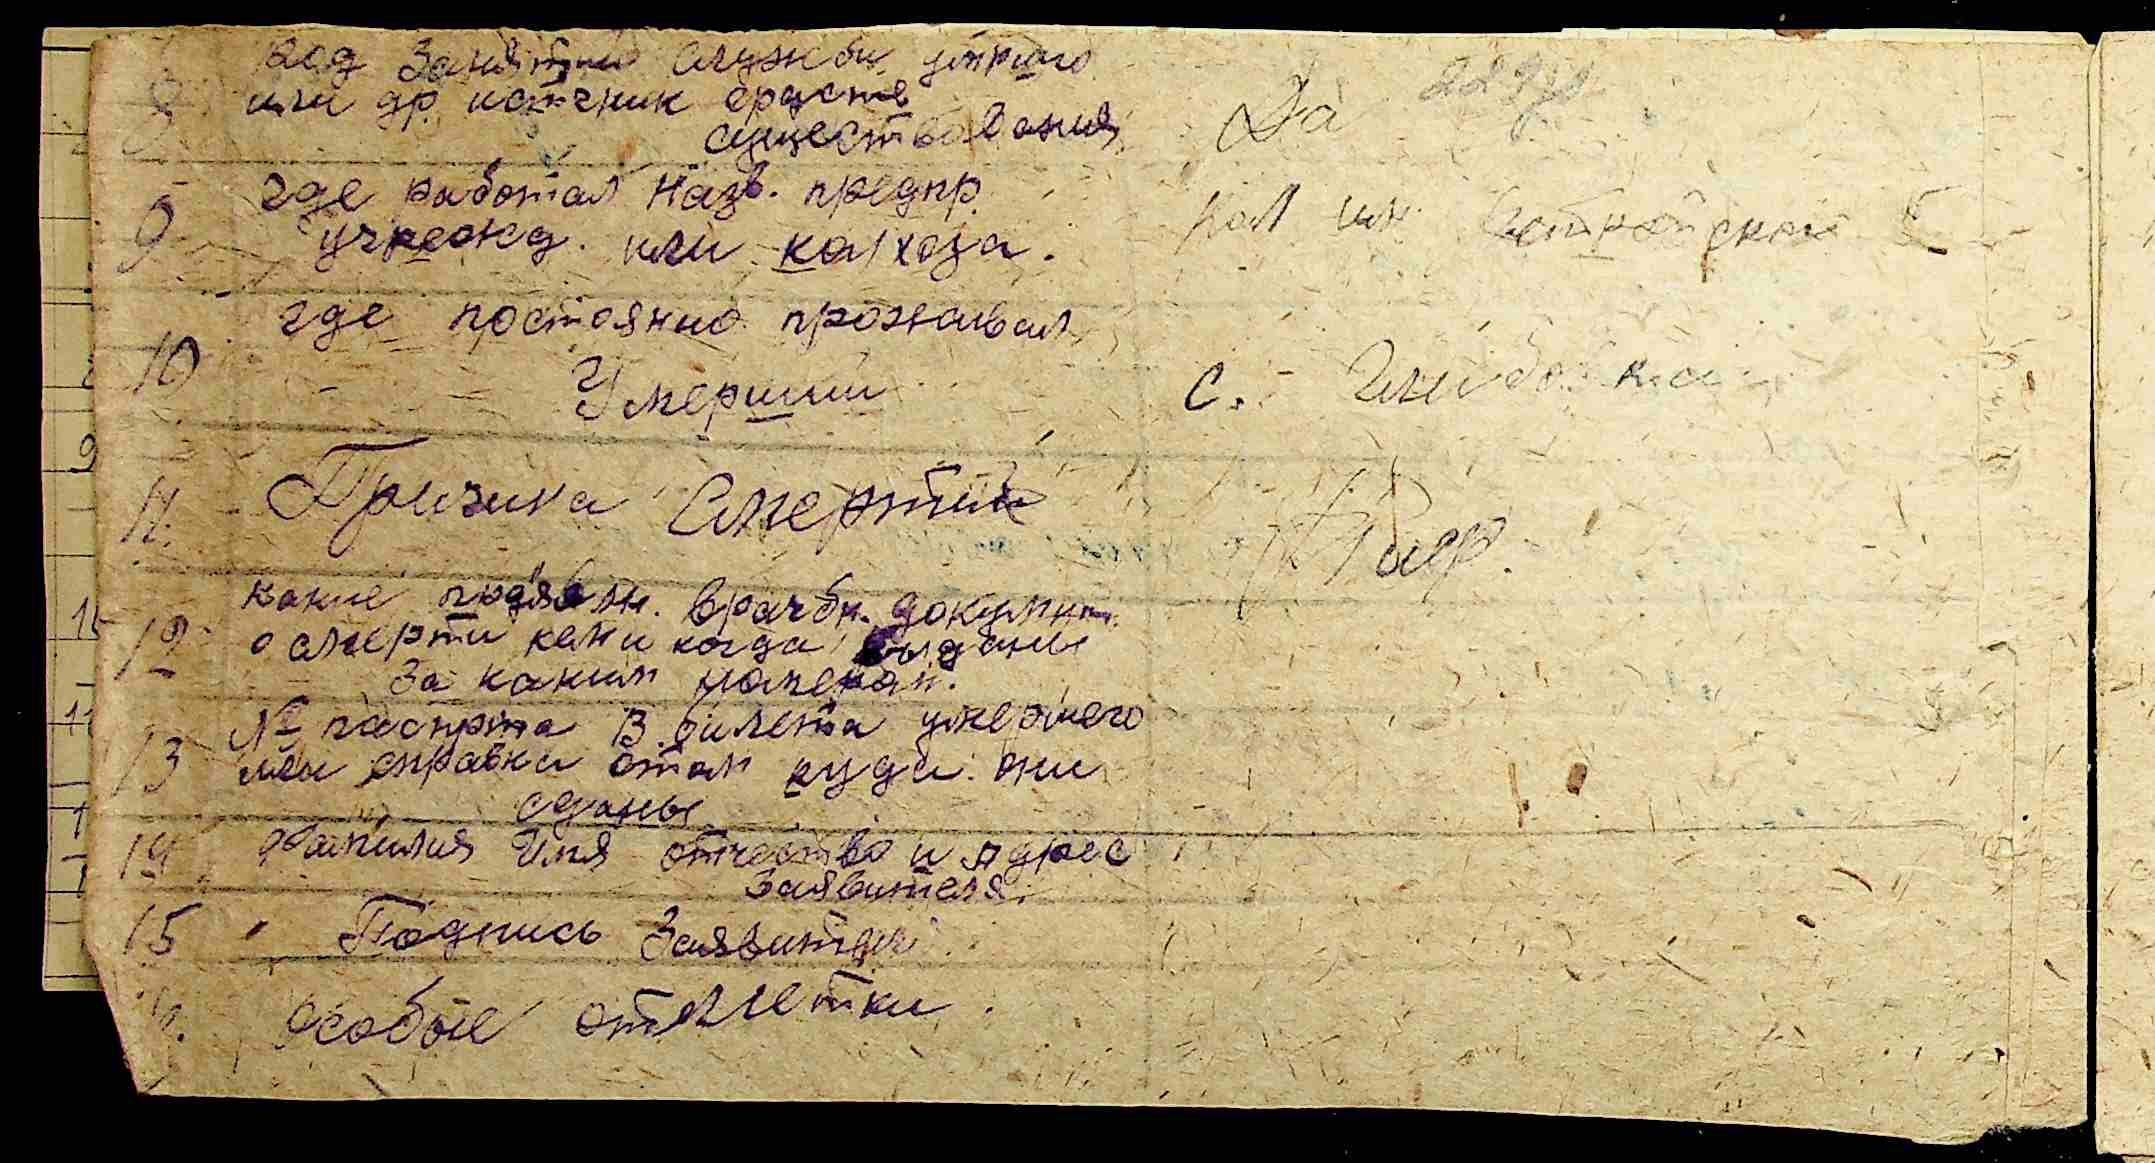 род занятий службы умршго
8 или др. источник средств
существования Да
9 где работал назв. предпр.
учрежд. или колхоза. кол им
10 где постоянно проживал
Умерший с.
11. Причина смерти
какие предъявлн. врачбн. докумнт.
12 о смерти кем и когда выданы
за каким номером.
№ паспрта в. билета умершего
13 или справка о том куда они
сданы
14 Фамилия Имя отчество и адрес
заявителя.
15 Подпись Заявител
Особые отметки.